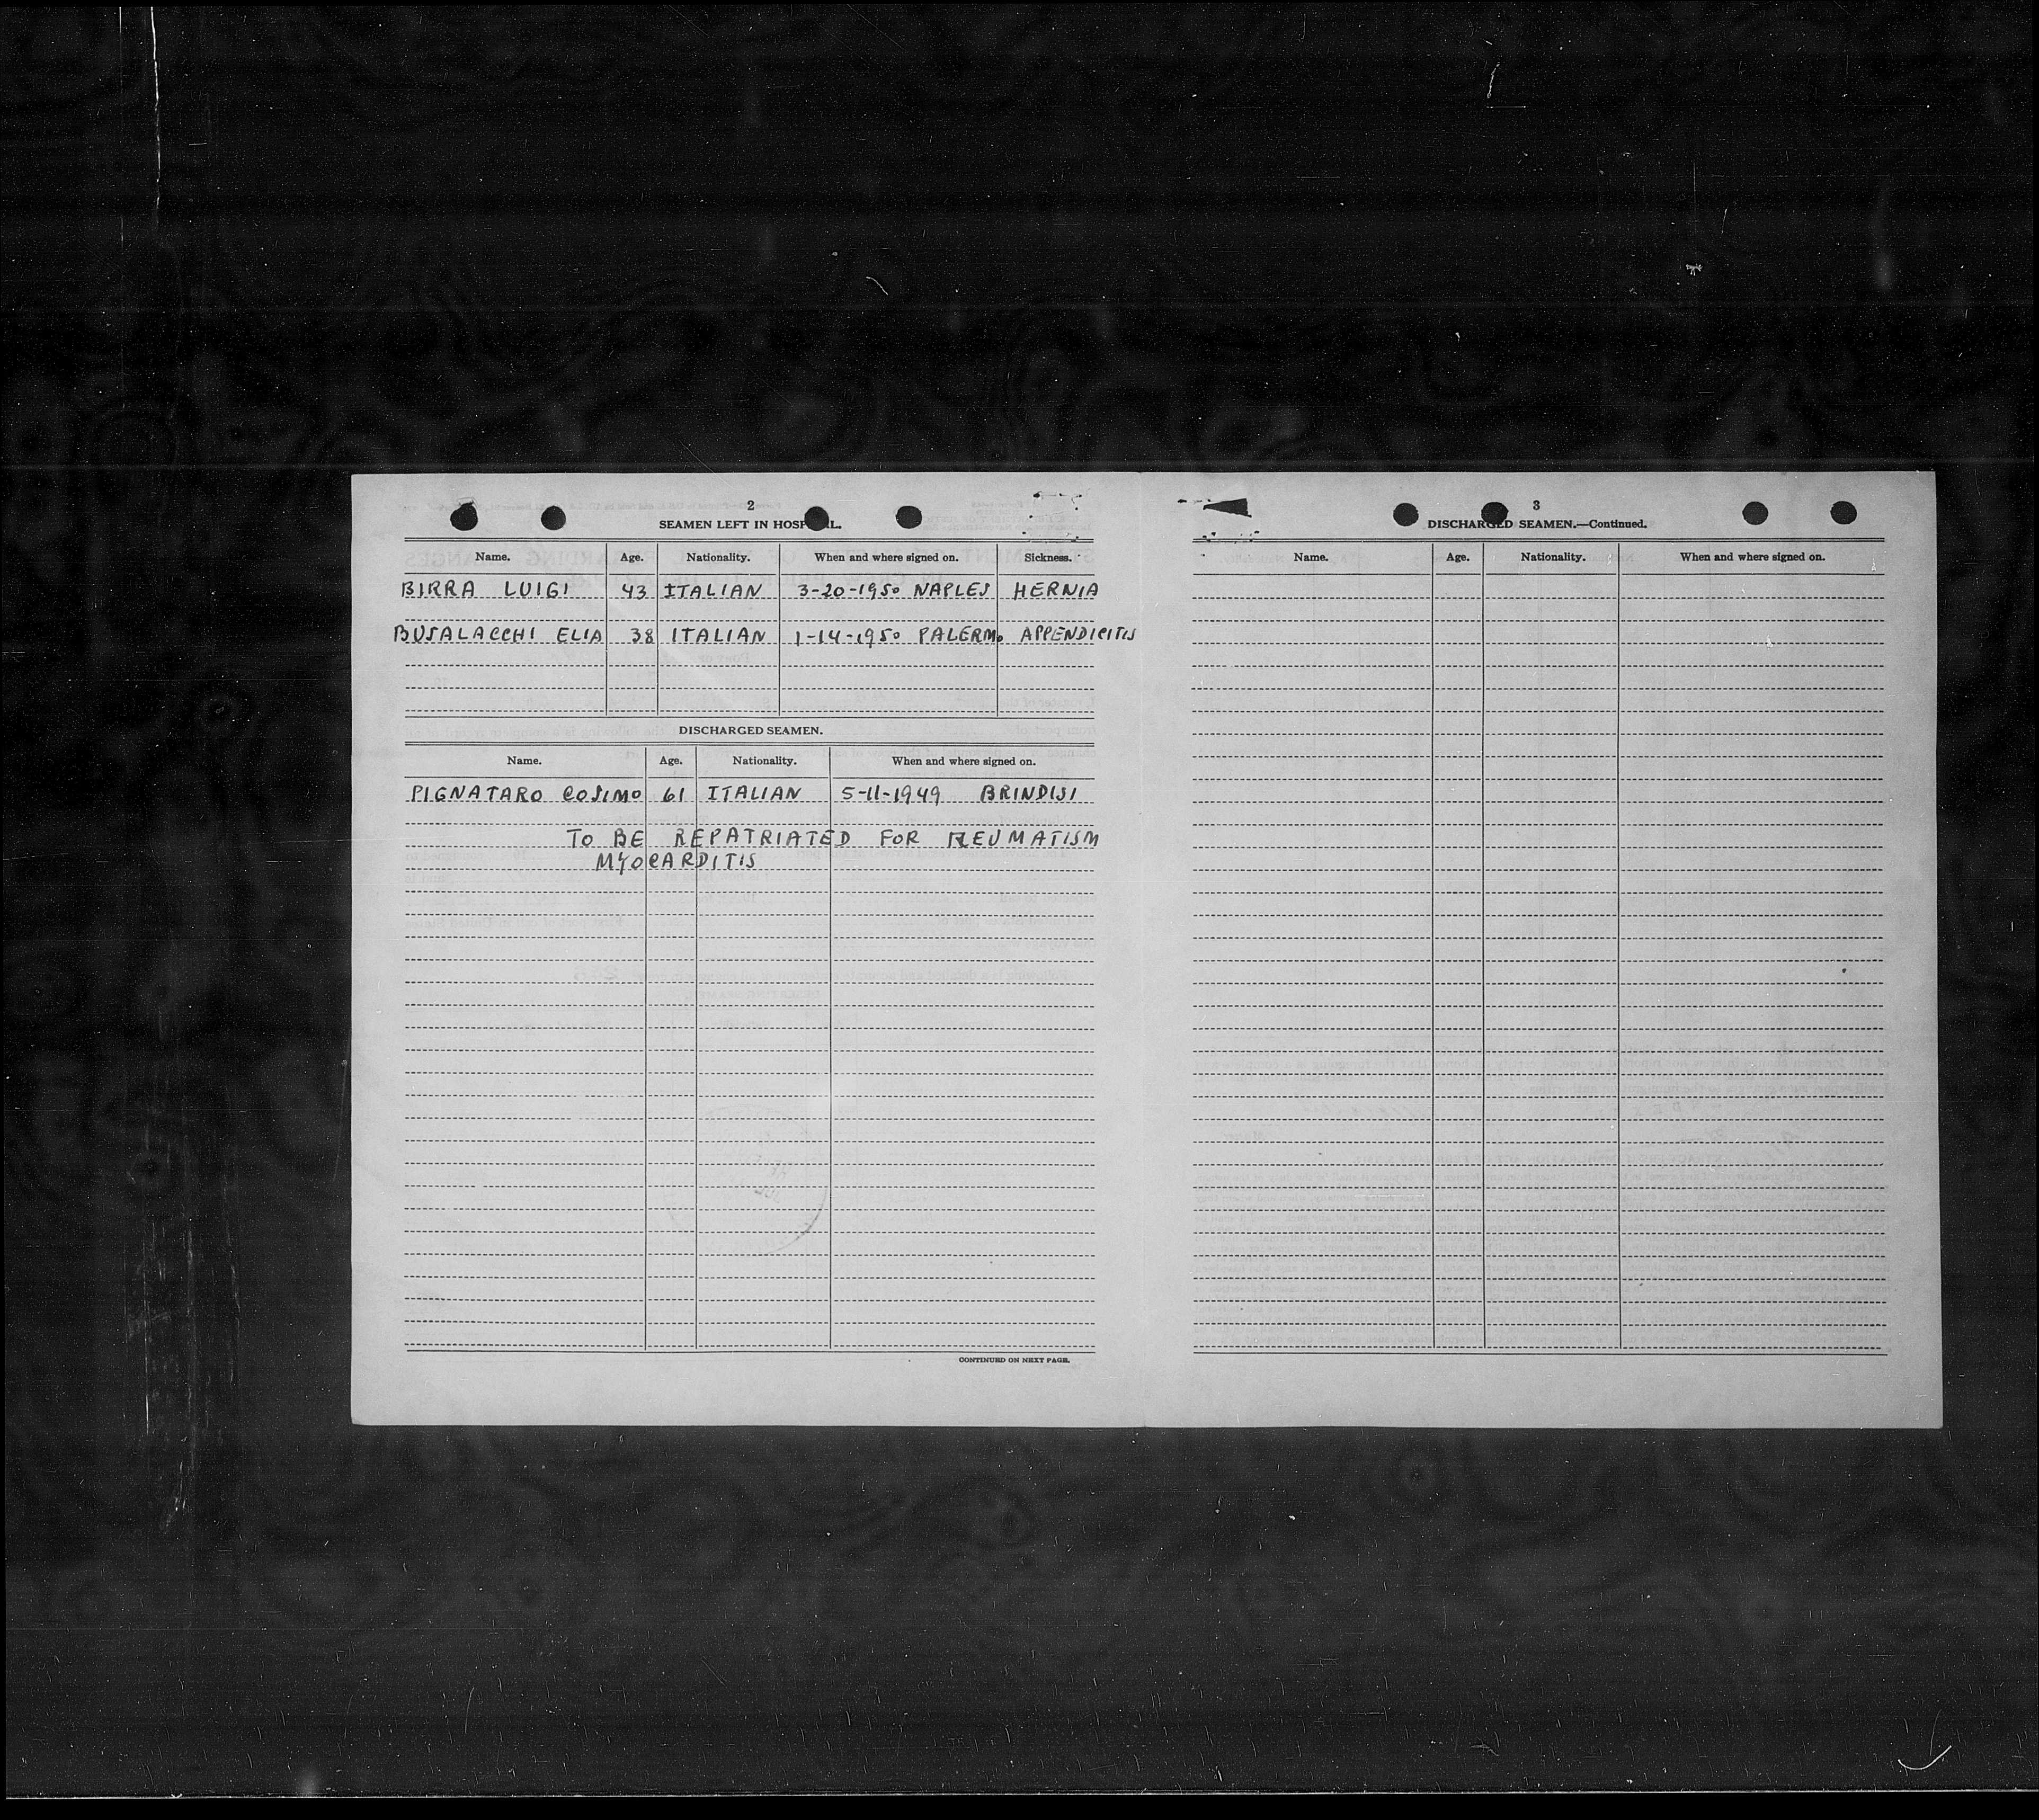 2
SEAMEN LEFT IN HOSP L.
Name. Age. Nationality. When and where signed on. Sickness.
BIRRA LUIGI 43 ITALIAN 3-20-1950 NAPLES HERNIA
BUSALACCHI ELIA 38 ITALIAN 1-14-1950 PALERMO APPENDICITIS
DISCHARGED SEAMEN.
Name. Age. Nationality. When and where signed on.
PIGNATARO COSIMO 61 ITALIAN 5-11-1949 BRINDISI
TO BE REPATRIATED FOR REUMATISM
MYOCARDITIS
CONTINUED ON NEXT PAGE.
3
DISCHARGED SEAMEN.—Continued.
Name. Age. Nationality. When and where signed on.